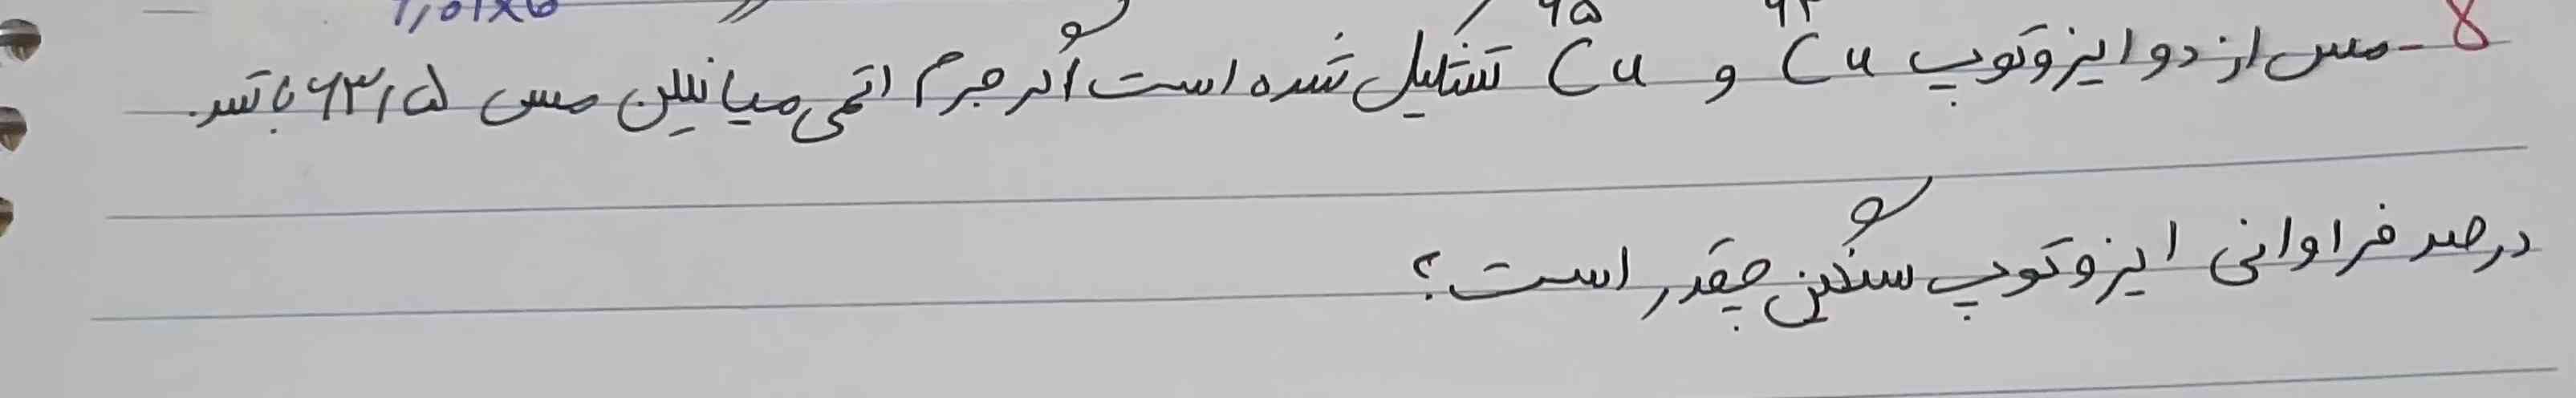 ۸- مس از دو ایزوتوپ Cu و ⁶⁵Cu تشکیل شده است اگر جرم اتمی میانگین مس ۶۳/۵ باشد.
درصد فراوانی ایزوتوپ سنگین چقدر است؟